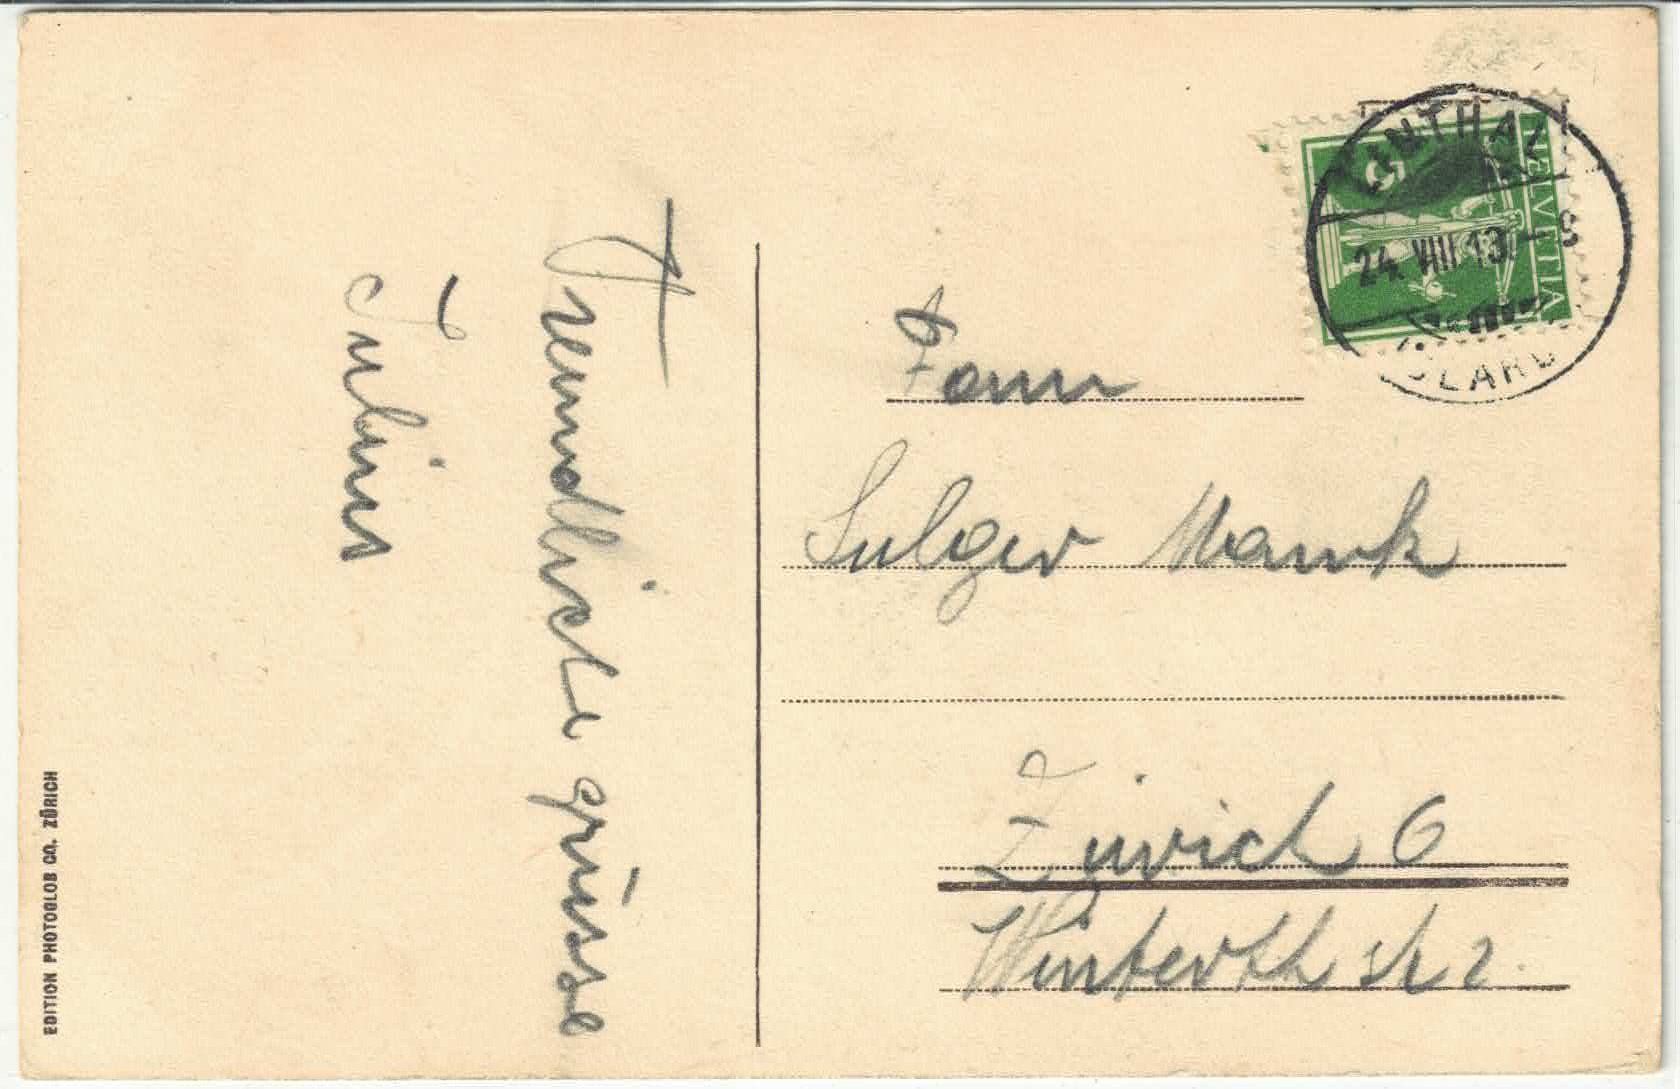 Freundliche grüsse
Julius
EDITION PHOTOGLOB CO. ZÜRICH
HELVETIA
5
LINTHAL
24. VIII 13. – 8
GLARUS
Fam
Sulger Mauk
Zürich 6
Winterth str 2.